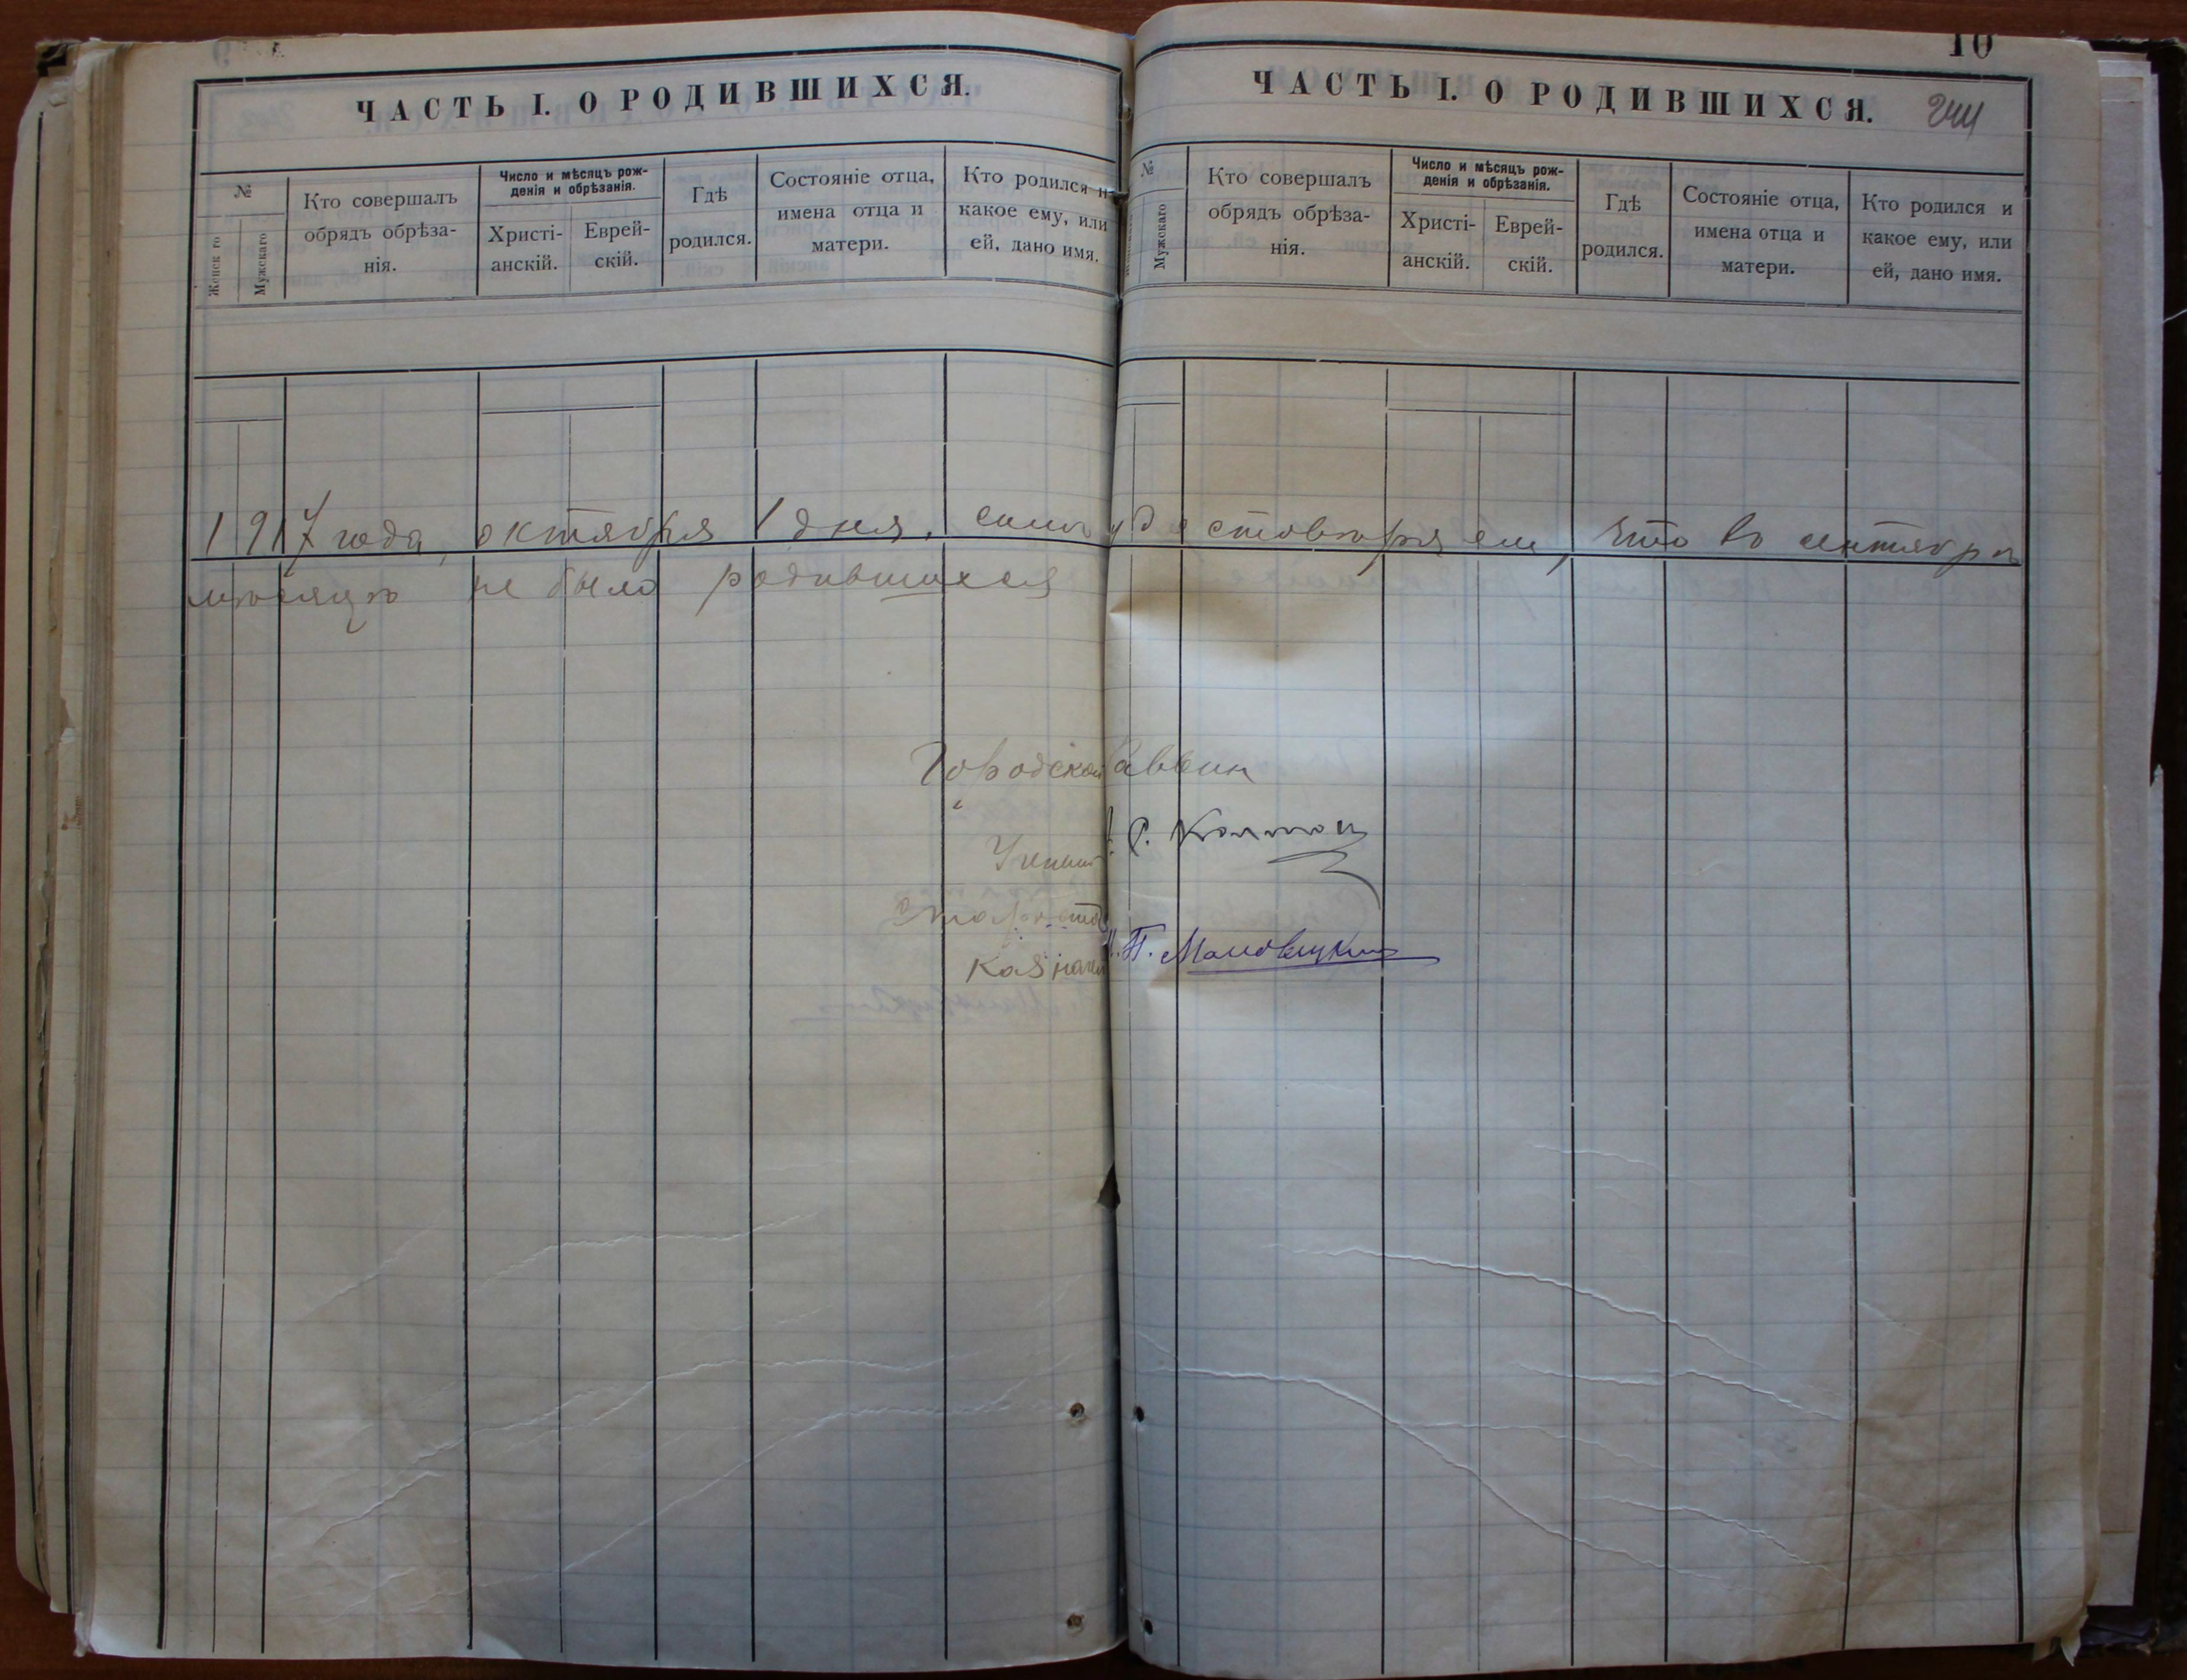 ЧАСТЬ I. О РОДИВШИХСЯ.
№
Женск го
Мужскаго
Кто совершалъ
обрядъ обрѣза-
нія.
Число и мѣсяцъ рож-
денія и обрѣзанія.
Христі-
анскій.
Еврей-
скій.
Гдѣ
родился.
Состояніе отца,
имена отца и
матери.
Кто родился и
какое ему, или
ей, дано имя.
10
ЧАСТЬ I. О РОДИВШИХСЯ.
№
Мужскаго
Кто совершалъ
обрядъ обрѣза-
нія.
Число и мѣсяцъ рож-
денія и обрѣзанія.
Христі-
анскій.
Еврей-
скій.
Гдѣ
родился.
Состояніе отца,
имена отца и
матери.
Кто родился и
какое ему, или
ей, дано имя.
1917 года, октября 1 дня, симъ удостовѣряем, что въ сентябрѣ
мѣсяцѣ не было родившихся
Городской раввин
Ученый
Староста
Казначей